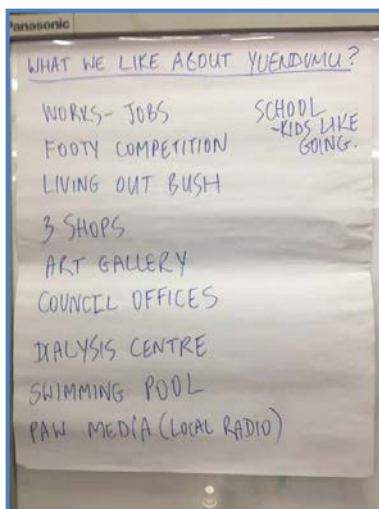 Panasonic
WHAT WE LIKE ABOUT YUENDUMU?
WORKS - JOBS
FOOTY COMPETITION
LIVING OUT BUSH
3 SHOPS
ART GALLERY
COUNCIL OFFICES
DIALYSIS CENTRE
SWIMMING POOL
PAW MEDIA (LOCAL RADIO)
SCHOOL
- KIDS LIKE
GOING.